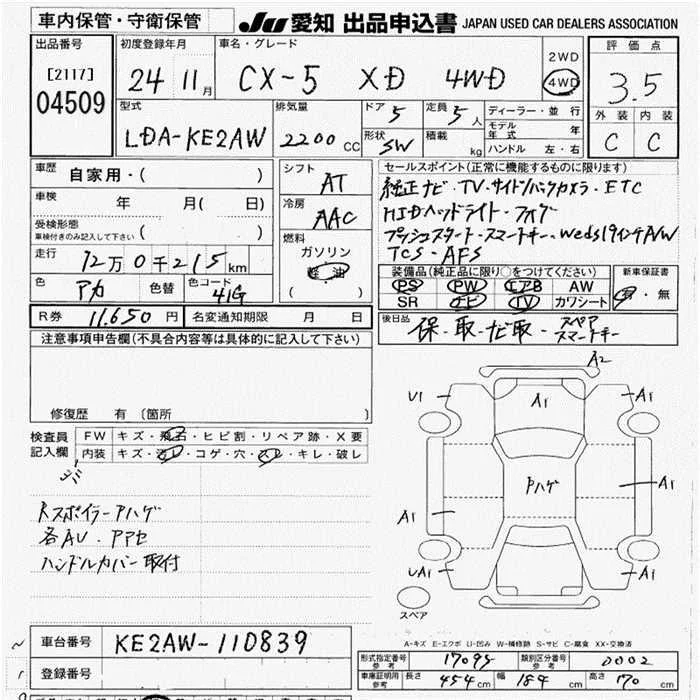 車内保管・守衛保管
JU 愛知 出品申込書 JAPAN USED CAR DEALERS ASSOCIATION
出品番号
[2117]
04509
初度登録年月
24 11月
車名・グレード
CX-5 XD 4WD
2WD
4WD
評価点
3.5
外装 内装
C C
型式
LDA-KE2AW
排気量
2200 CC
ドア 5
定員 5人
形状 SW
積載 kg
ディーラー・並行
モデル年式 年
ハンドル 左・右
車歴 自家用・( )
車検 年 月( 日)
受検形態
車検付きのみ記入して下さい ( )
走行 12万0千215km
色 アカ 色替 色コード 41G
シフト AT
冷房 AAC
燃料
ガソリン
軽油
( )
セールスポイント(正常に機能するものに限ります)
純正ナビ・TV・サイド/バックカメラ・ETC
HIDヘッドライト・フォグ
プッシュスタート・スマートキー・Weds19インチA/W
TCS・AFS
装備品(純正品に限り○をつけてください)
PS PW エアB AW
SR ナビ TV カワシート
新車保証書
有・無
R券 11,650円 名変通知期限 月 日
後日品 保・取・ナビ取・スペアスマートキー
注意事項申告欄(不具合内容等は具体的に記入して下さい)
修復歴 有 〔箇所 〕
検査員記入欄
FW キズ・飛石・ヒビ割・リペア跡・X要
内装 キズ・汚レ・コゲ・穴・スレ・キレ・破レ
Rスポイラーアハゲ
各AU・Pアセ
ハンドルカバー取付
A2
U1
A1
A1
Pハゲ
A1
A1
UA1
A1
スペア
車台番号 KE2AW-110839
登録番号
A-キズ E-エクボ U-凹み W-補修跡 S-サビ C-腐食 XX-交換済
形式指定番号 参考 17095 類別区分番号 参考 0002
車庫証明用 参考 長さ 454cm 幅 184cm 高さ 170cm